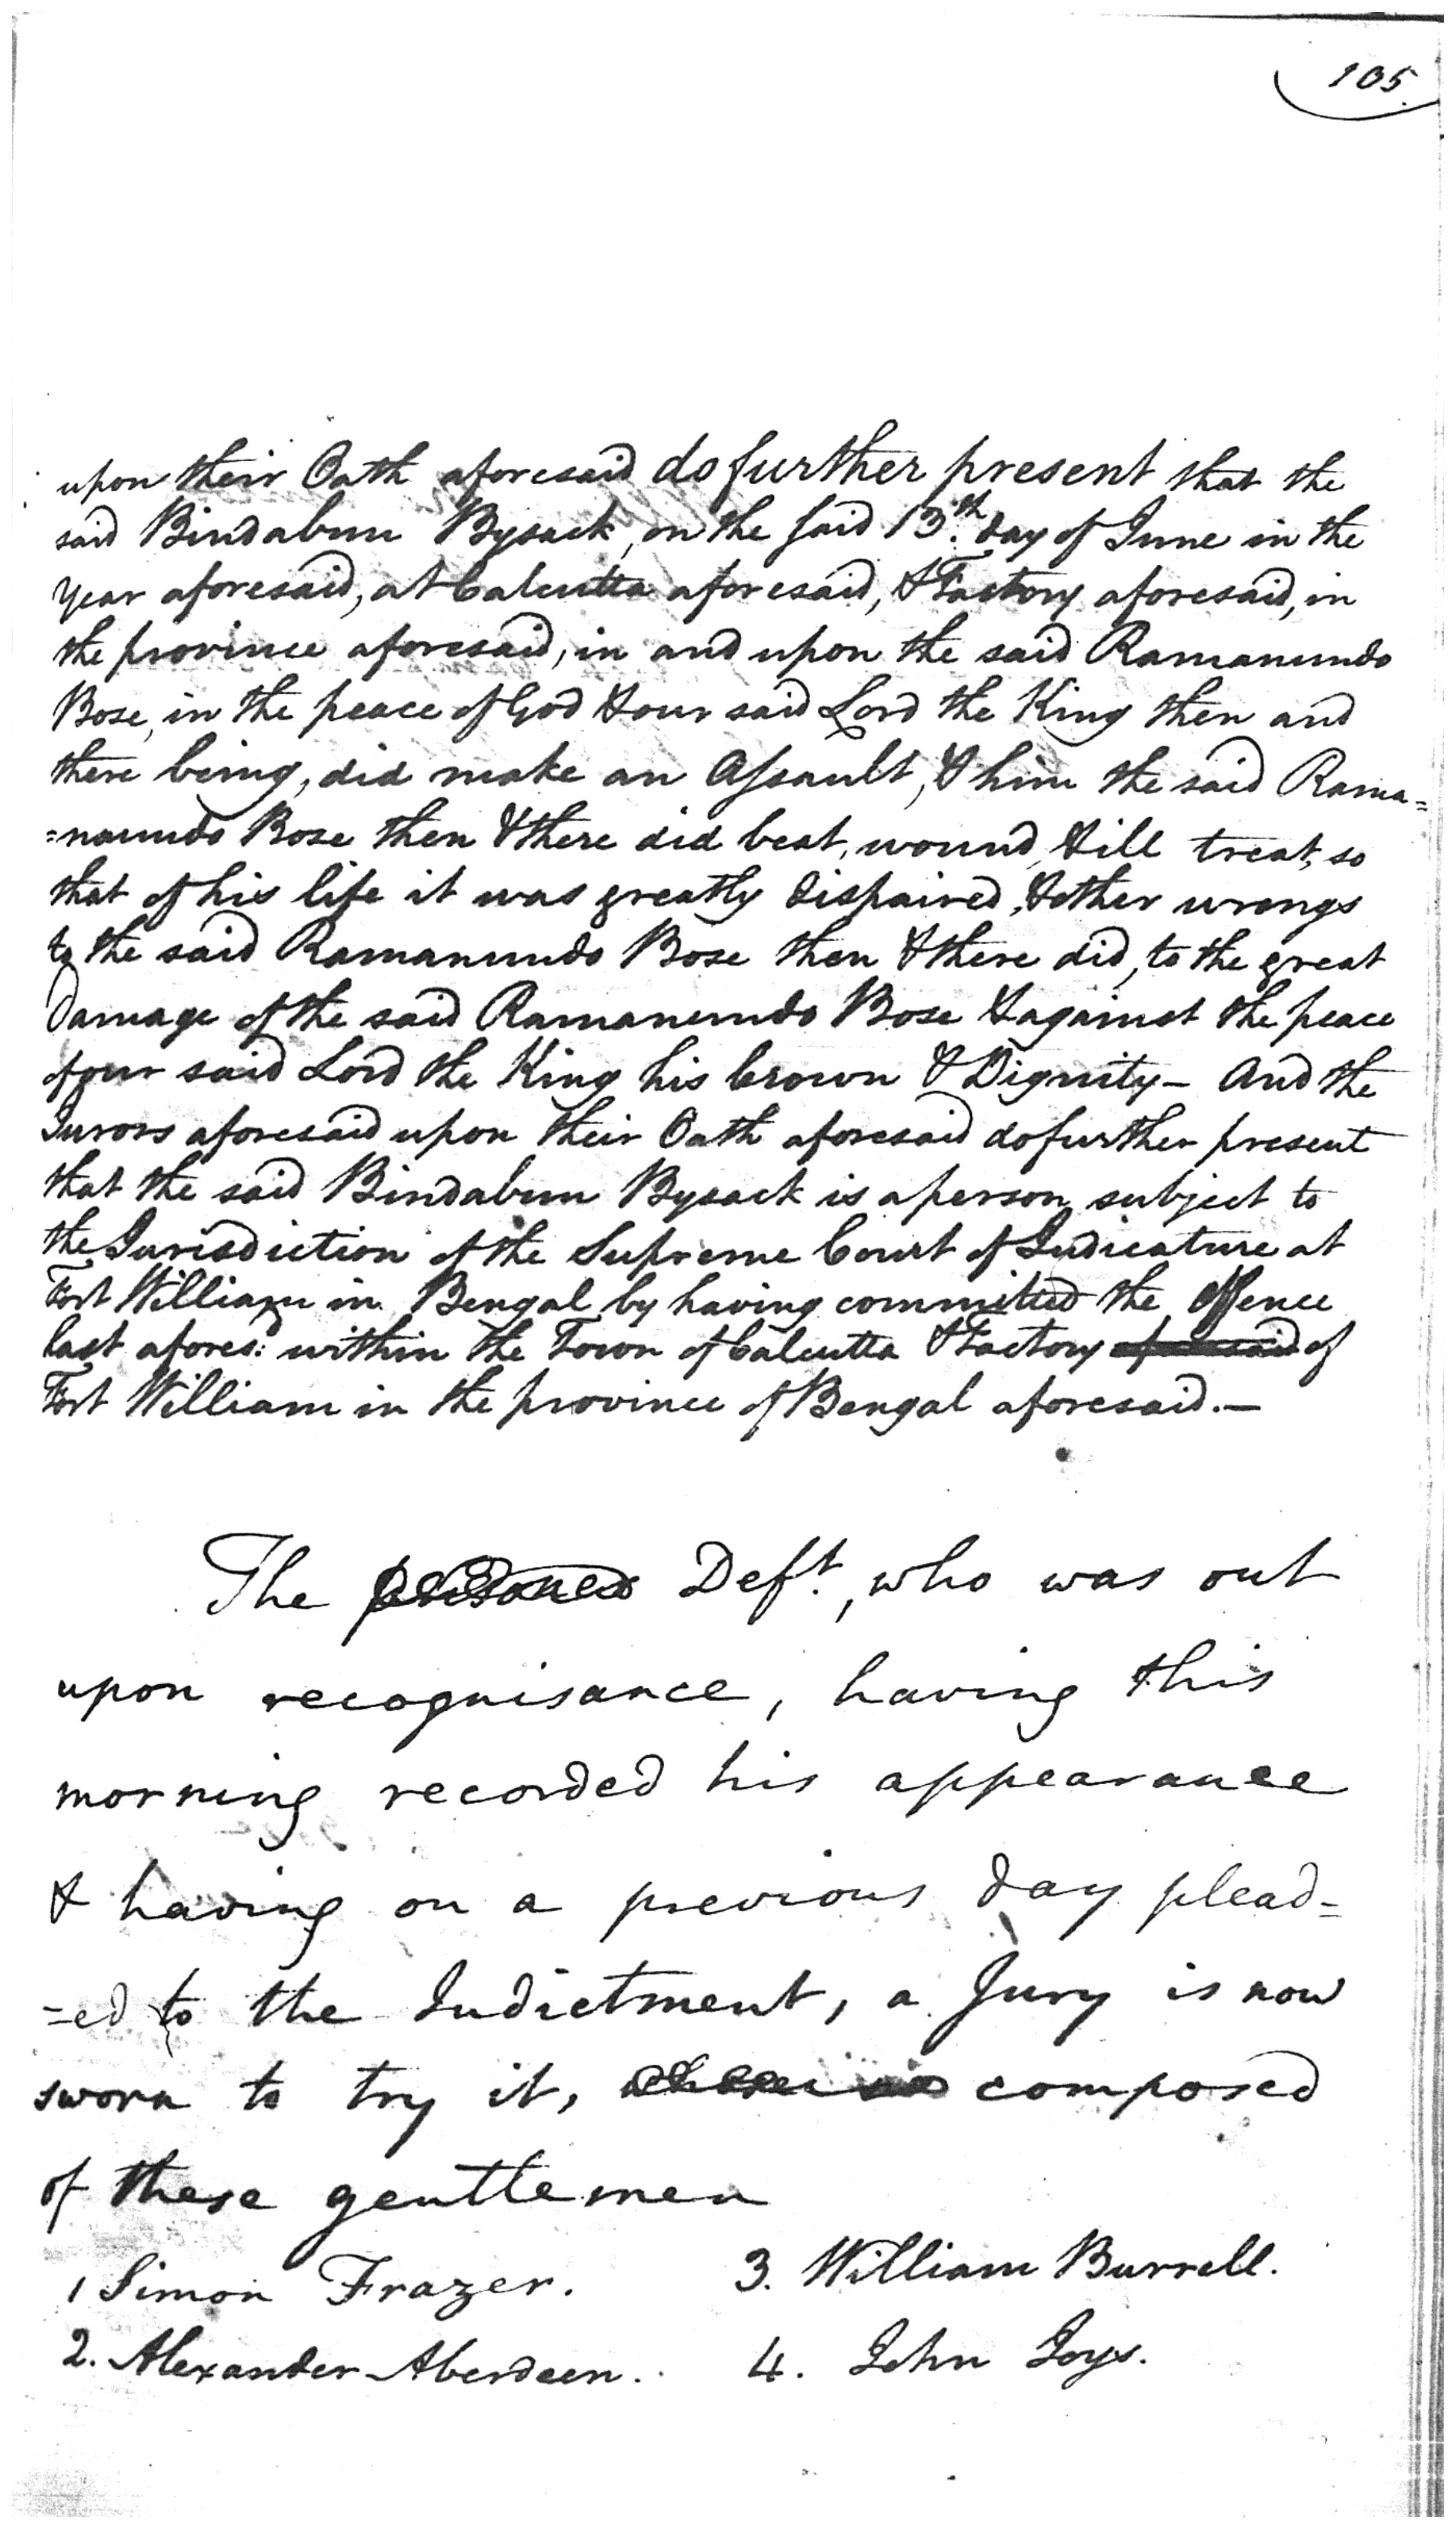 105.
upon their Oath aforesaid do further present that the
said Bindabun Bysack, on the said 13.th day of June in the
year aforesaid, at Calcutta aforesaid, & Factory aforesaid, in
the province aforesaid, in and upon the said Ramanundo
Bose, in the peace of God & our said Lord the King then and
there being, did make an Assault, & him the said Rama=
=nundo Bose then & there did beat, wound, & ill treat, so
that of his life it was greatly dispaired, & other wrongs
to the said Ramanundo Bose then & there did, to the great
Damage of the said Ramanundo Bose & against the peace
of our said Lord the King his Crown & Dignity — And the
Jurors aforesaid upon their Oath aforesaid do further present
that the said Bindabun Bysack is a person subject to
the Jurisdiction of the Supreme Court of Judicature at
Fort William in Bengal by having committed the offence
last afores:d within the Town of Calcutta & Factory aforesaid of
Fort William in the province of Bengal aforesaid. —
The prisoner Deft., who was out
upon recognisance, having this
morning recorded his appearance
& having on a previous day plead=
=ed to the Indictment, a Jury is now
sworn to try it, composed
of these gentlemen
1 Simon Frazer.
2. Alexander Aberdeen.
3. William Burrell.
4. John Joys.